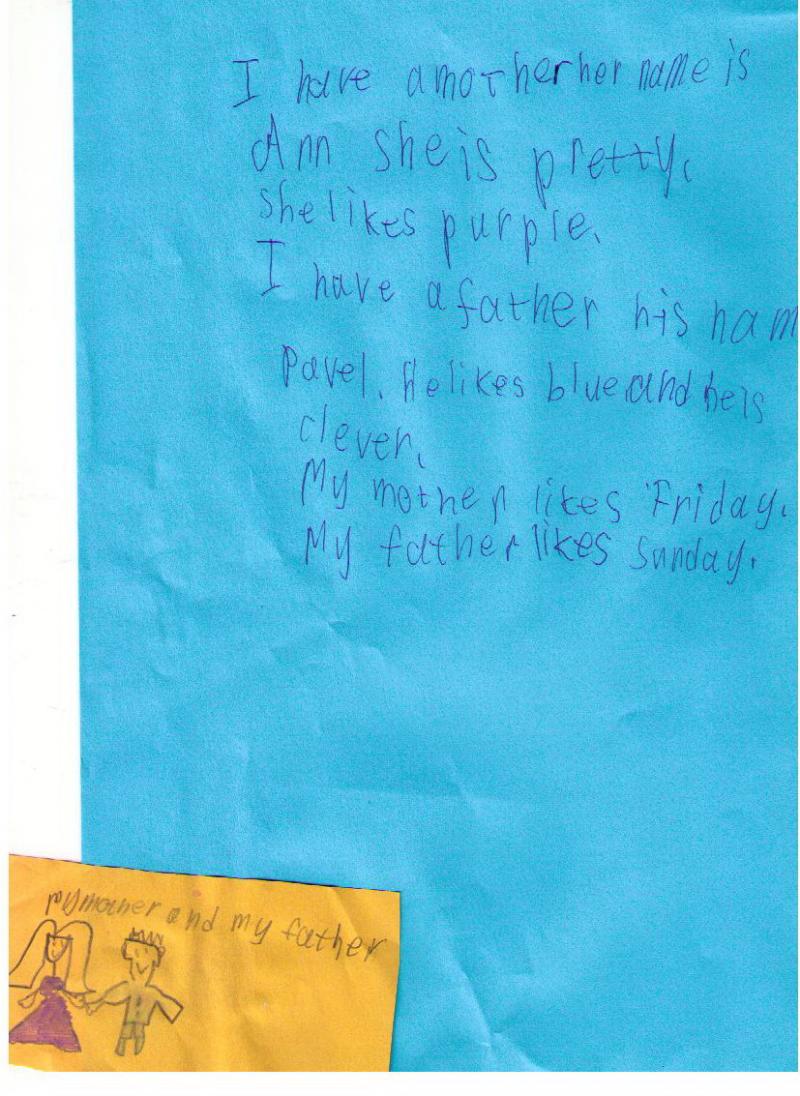 I have a mother her name is
Ann she is pretty.
she likes purple.
I have a father his nam
Pavel. He likes blue and he is
clever.
My mother likes Friday.
My father likes Sunday.
my mother and my father